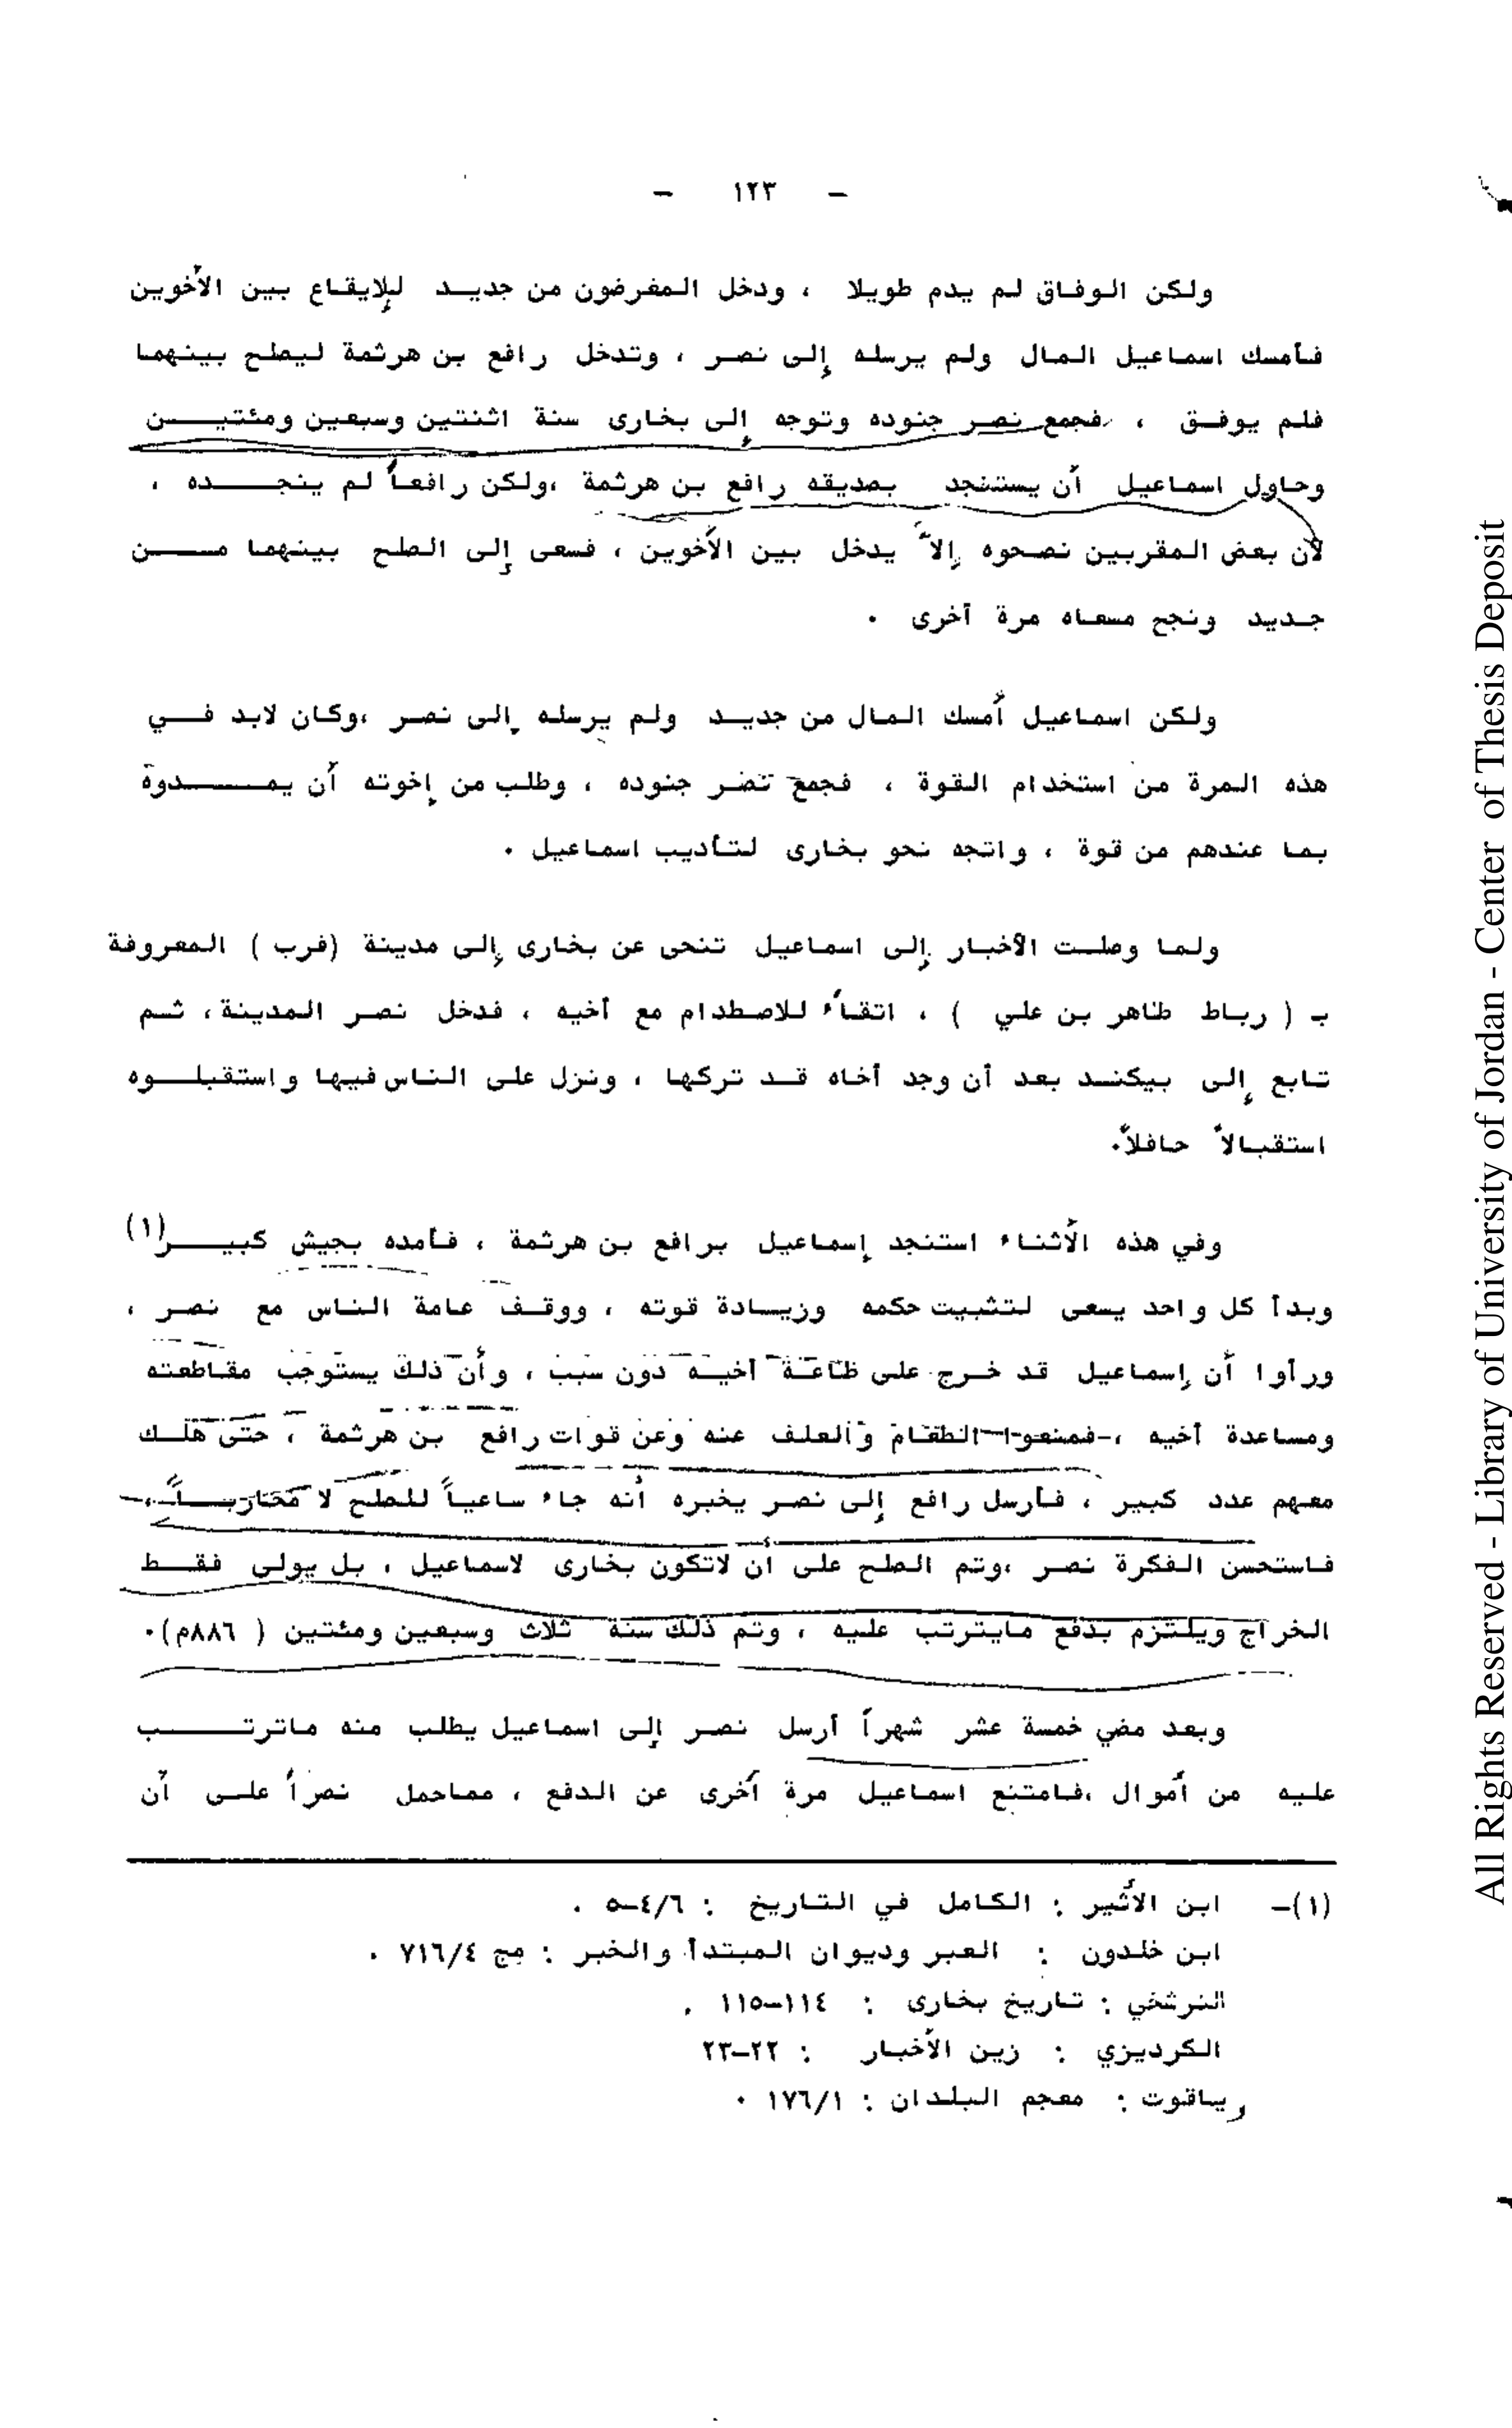 - ١٢٣ -
ولكن الوفاق لم يدم طويلا ، ودخل المغرضون من جديد للإيقاع بين الأخوين
فأمسك اسماعيل المال ولم يرسله إلى نصر ، وتدخل رافع بن هرثمة ليصلح بينهما
فلم يوفق ، فجمع نصر جنوده وتوجه إلى بخارى سنة اثنتين وسبعين ومئتين
وحاول اسماعيل أن يستنجد بصديقه رافع بن هرثمة ،ولكن رافعاً لم ينجده ،
لأن بعض المقربين نصحوه إلاّ يدخل بين الأخوين ، فسعى إلى الصلح بينهما من
جديد ونجح مسعاه مرة أخرى .
ولكن اسماعيل أمسك المال من جديد ولم يرسله إلى نصر ،وكان لابد في
هذه المرة من استخدام القوة ، فجمع نصر جنوده ، وطلب من إخوته أن يمدوه
بما عندهم من قوة ، واتجه نحو بخارى لتأديب اسماعيل .
ولما وصلت الأخبار إلى اسماعيل تنحى عن بخارى إلى مدينة (فرب ) المعروفة
بـ ( رباط طاهر بن علي ) ، اتقاءً للاصطدام مع أخيه ، فدخل نصر المدينة ، ثم
تابع إلى بيكند بعد أن وجد أخاه قد تركها ، ونزل على الناس فيها واستقبلوه
استقبالاً حافلاً.
وفي هذه الأثناء استنجد إسماعيل برافع بن هرثمة ، فأمده بجيش كبير(١)
وبدأ كل واحد يسعى لتثبيت حكمه وزيادة قوته ، ووقف عامة الناس مع نصر ،
ورأوا أن إسماعيل قد خرج على طاعة أخيه دون سبب ، وأن ذلك يستوجب مقاطعته
ومساعدة أخيه ، فمنعوا الطعام والعلف عنه وعن قوات رافع بن هرثمة ، حتى هلك
معهم عدد كبير ، فأرسل رافع إلى نصر يخبره أنه جاء ساعياً للصلح لا محارباً ،
فاستحسن الفكرة نصر ،وتم الصلح على أن لاتكون بخارى لاسماعيل ، بل يولى فقط
الخراج ويلتزم بدفع مايترتب عليه ، وتم ذلك سنة ثلاث وسبعين ومئتين ( ٨٨٦م).
وبعد مضي خمسة عشر شهراً أرسل نصر إلى اسماعيل يطلب منه ماترتب
عليه من أموال ،فامتنع اسماعيل مرة أخرى عن الدفع ، مماحمل نصراً على أن
(١)- ابن الأثير : الكامل في التاريخ : ٤/٦-٥ .
ابن خلدون : العبر وديوان المبتدأ والخبر : مج ٧١٦/٤ .
النرشخي : تاريخ بخارى : ١١٤-١١٥ .
الكرديزي : زين الأخبار : ٢٢-٢٣
ياقوت : معجم البلدان : ١٧٦/١ .
All Rights Reserved - Library of University of Jordan - Center of Thesis Deposit